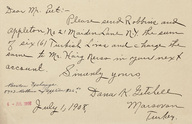 Dear Mr. Peet:-
Please send Robbins and
Appleton No 21 Maiden Lane N.Y. the sum
of six 161 Turkish Liras and charge the
same to Mr. King Reson in your next
account.
Sincerely yours
Dana K. Getchell
Marsovan
Turkey.
July 1, 1908.